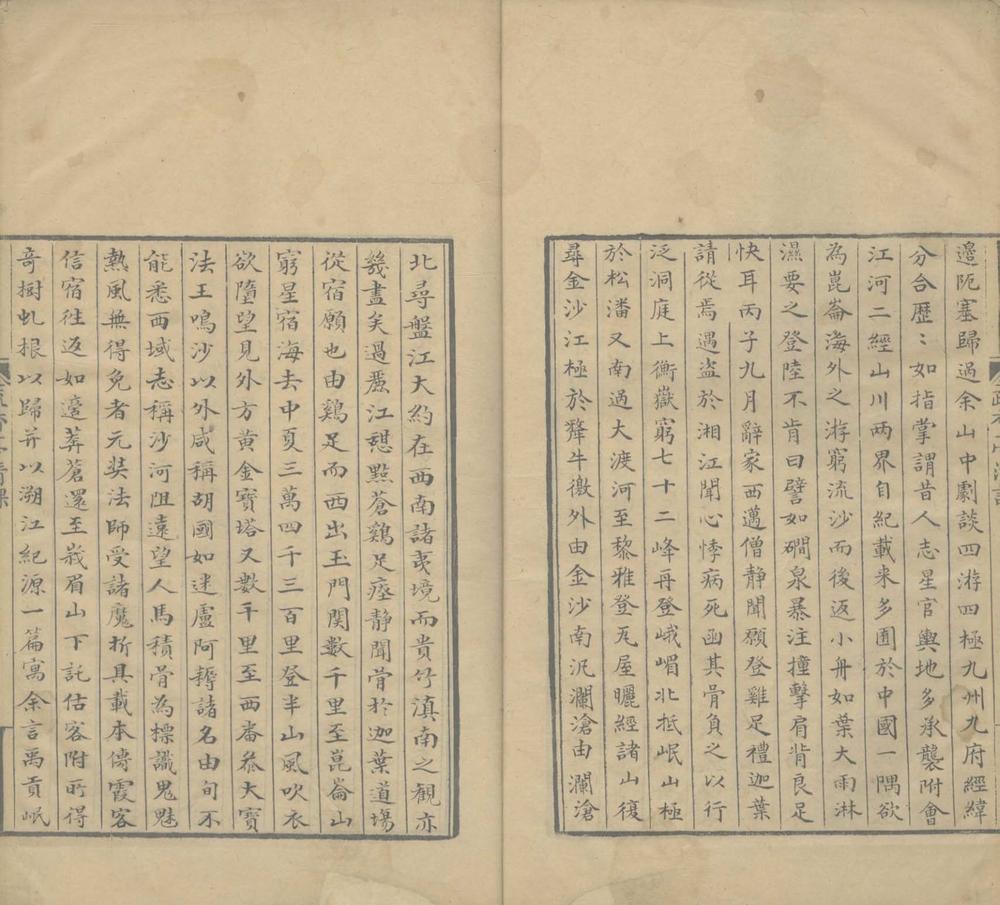 邉阨塞歸過余山中劇談四游四極九州九府經緯
分合歷：如指掌謂昔人志星官輿地多承襲附會
江河二經山川兩界自紀載来多囿於中國一隅欲
為崑崙海外之游窮流沙而後返小舟如葉大雨淋
濕要之登陸不肯曰譬如磵泉暴注撞擊肩背良足
快耳丙子九月辭家西邁僧静聞願登雞足禮迦葉
請從焉遇盜於湘江聞心悸病死函其骨負之以行
泛洞庭上衡嶽窮七十二峰再登峨嵋北抵岷山極
於松潘又南過大渡河至黎雅登瓦屋曬經諸山復
尋金沙江極於犛牛徼外由金沙南汎瀾滄由瀾滄
北尋盤江大約在西南諸夷境而貴竹滇南之觀亦
幾盡矣過麗江憇點蒼鷄足瘞静聞骨於迦葉道場
從宿願也由鷄足而西出玉門関數千里至崑崙山
窮星宿海去中夏三萬四千三百里登半山風吹衣
欲墮望見外方黄金寶塔又數千里至西番叅大寶
法王鳴沙以外咸稱胡國如迷盧阿耨諸名由旬不
能悉西域志稱沙河阻遠望人馬積骨為標識鬼魅
熱風無得免者元奘法師受諸魔折具載本傳霞客
信宿徃返如適莽蒼還至峩眉山下託估客附所得
奇樹虬根以歸并以溯江紀源一篇寓余言禹貢岷